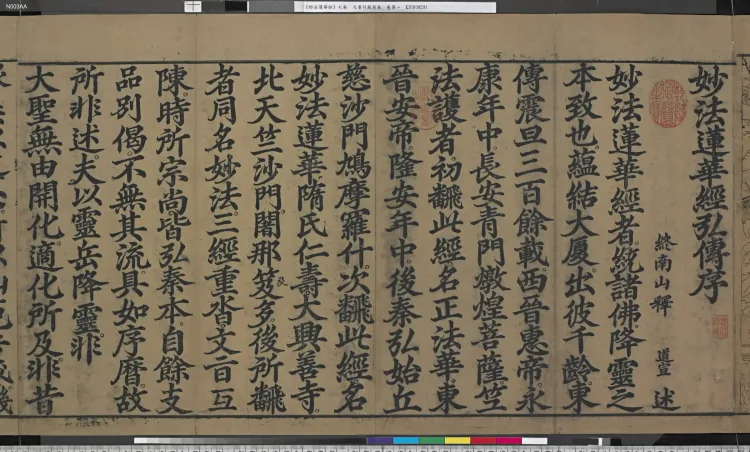 N003AA
妙法蓮華經弘傳序
終南山釋 道宣 述
妙法蓮華經者統諸佛降靈之
本致也蘊結大厦出彼千齡東
傳震旦三百餘載西晉惠帝永
康年中長安青門燉煌菩薩竺
法護者初飜此經名正法華東
晉安帝隆安年中後秦弘始丘
慈沙門鳩摩羅什次飜此經名
妙法蓮華隋氏仁壽大興善寺
北天竺沙門闍那笈多後所飜
者同名妙法三經重沓文旨互
陳時所宗尚皆弘秦本自餘支
品別偈不無其流具如序曆故
所非述夫以靈岳降靈非
大聖無由開化適化所及非昔